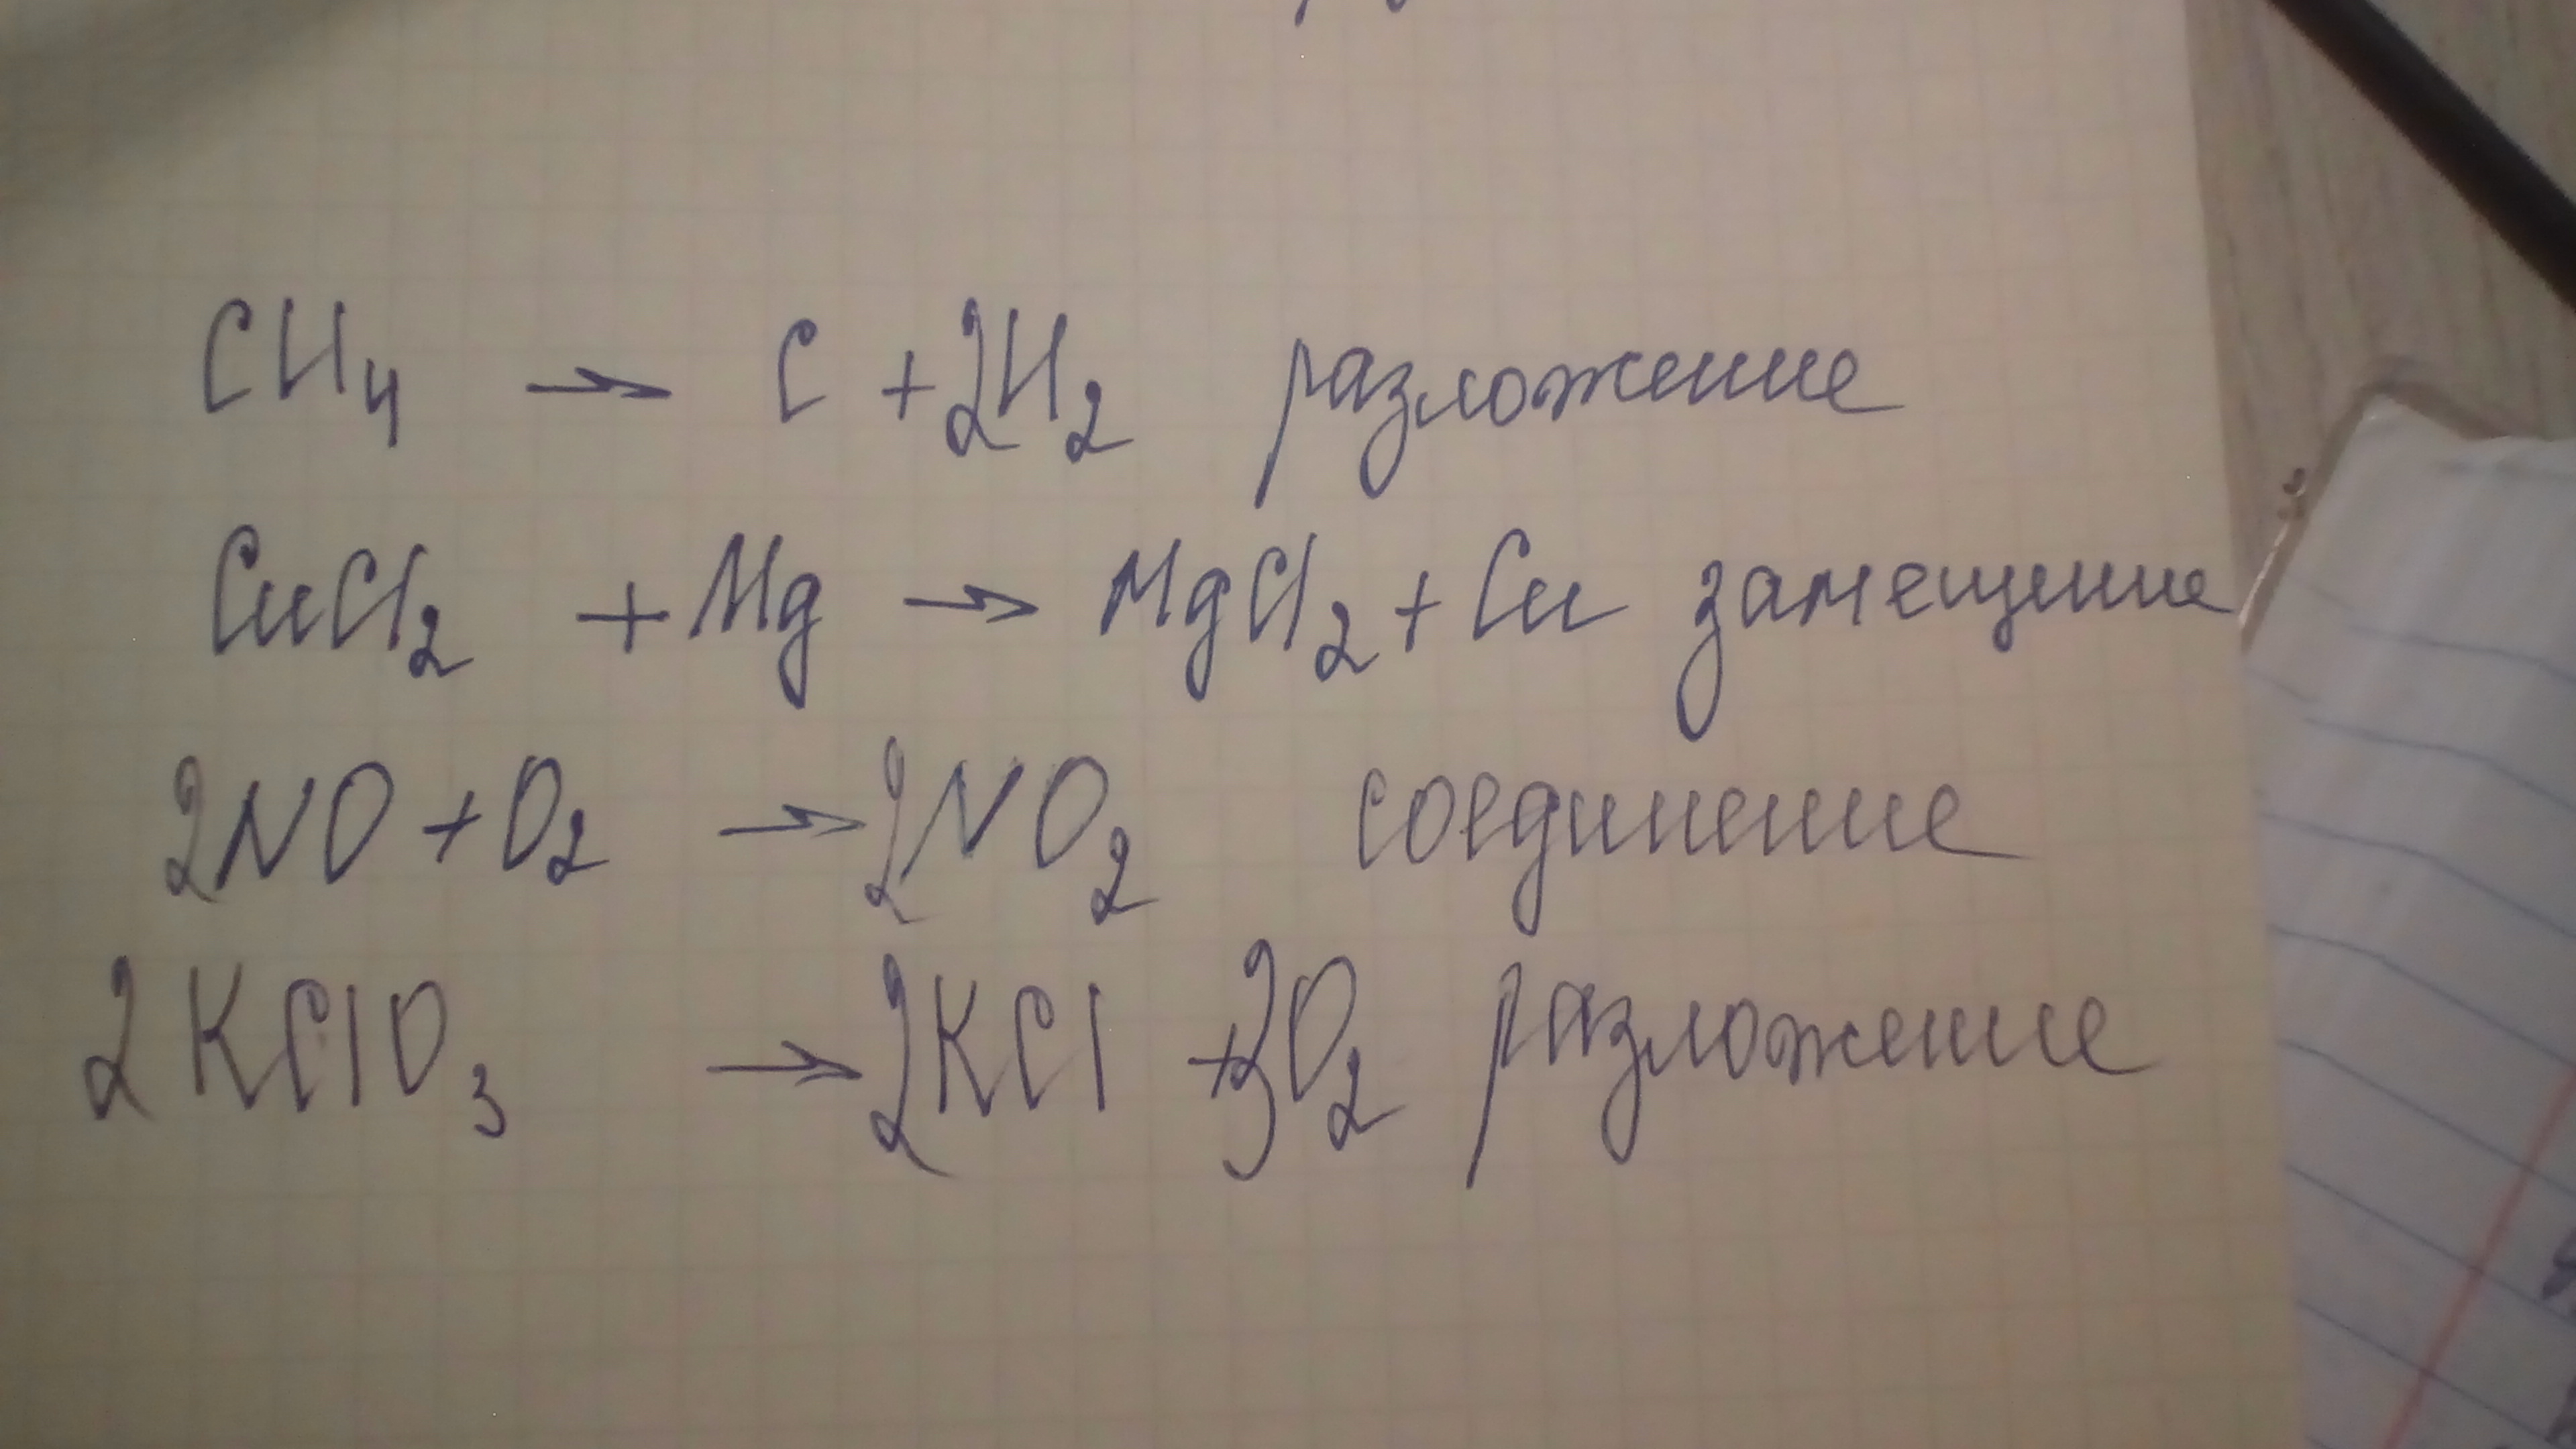 CH₄ → C + 2H₂ разложение
CuCl₂ + Mg → MgCl₂ + Cu замещение
2NO + O₂ → 2NO₂ соединение
2KClO₃ → 2KCl + 3O₂ разложение